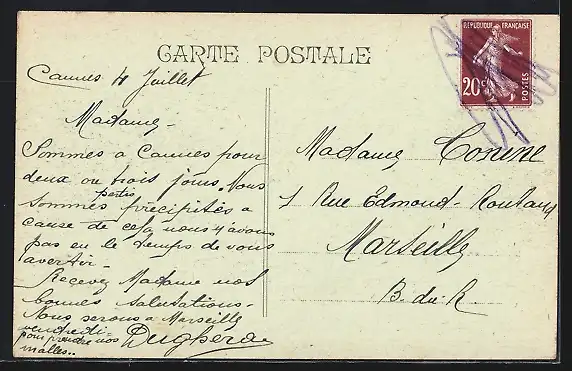 CARTE POSTALE
REPUBLIQUE FRANÇAISE
20c
POSTES
Cannes 4 Juillet
Madame -
Sommes a Cannes pour
deux ou trois jours. Nous
sommes partis précipités a
cause de cela nous n'avons
pas eu le temps de vous
avertir -
Recevez Madame nos
bonnes salutations -
Nous serons a Marseille
vendredi -
pour prendre nos
malles..
Madame
1 Rue Edmond-Rostand
Marseille
B.-du-R